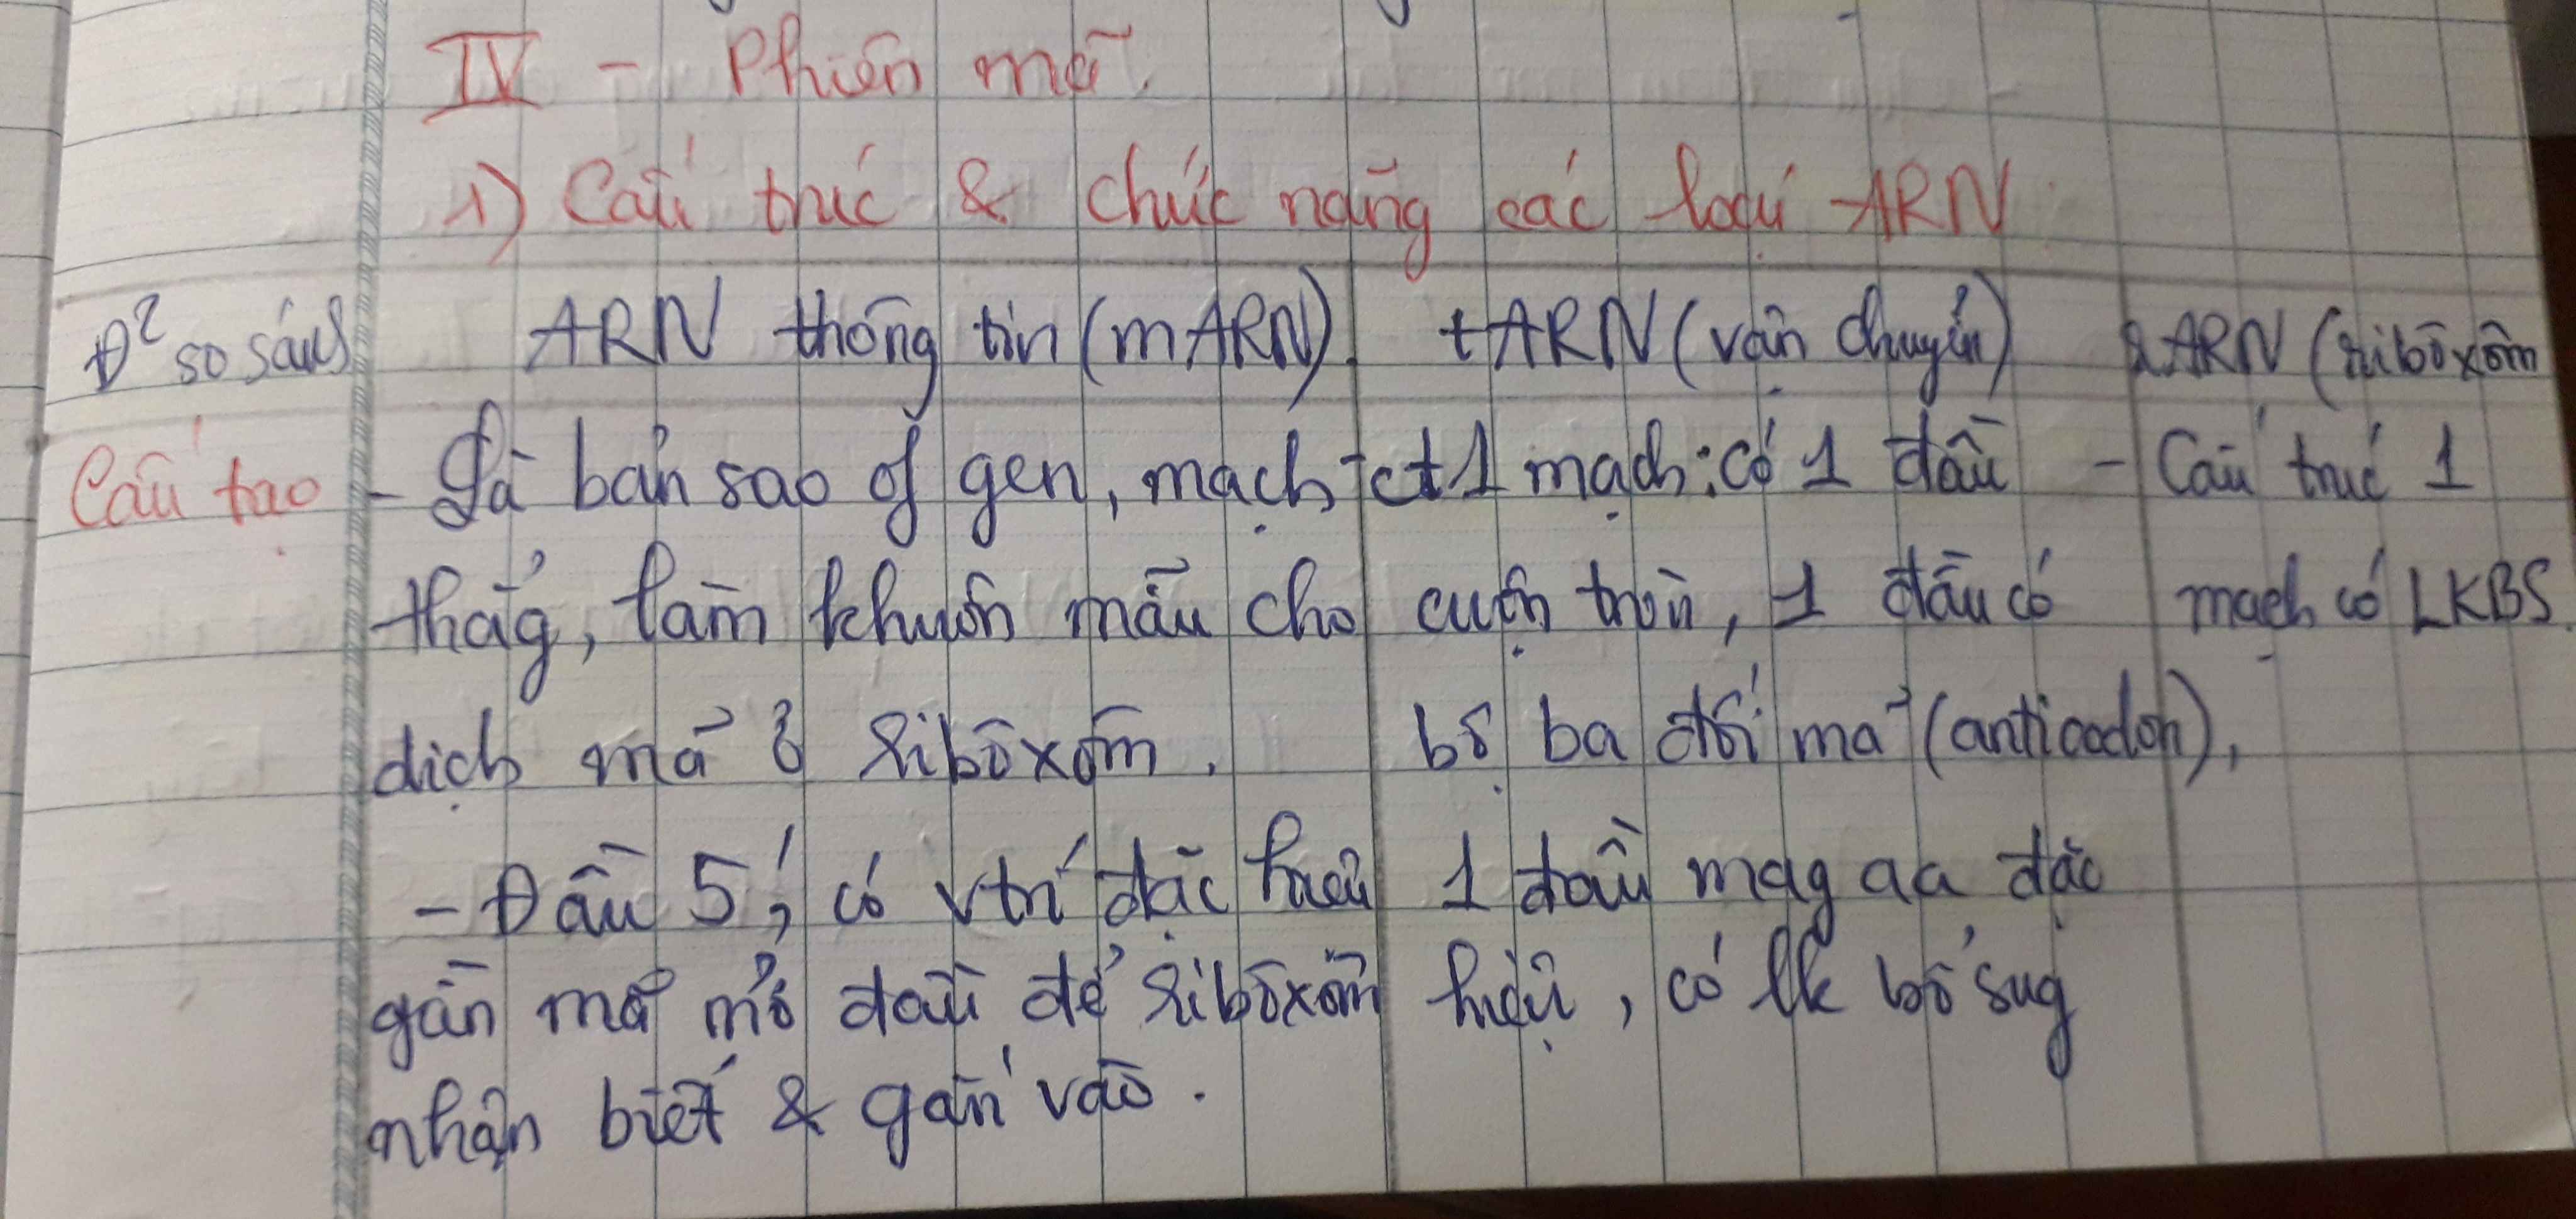 IV - Phiên mã.
1) Cấu trúc & chức năng các loại ARN
Đ² so sánh ARN thông tin (mARN). tARN (vận chuyển) rARN (ribôxôm
Cấu tạo - Là bản sao of gen, mạch - ct 1 mạch: có 1 đầu - Cấu trúc 1
thẳg, làm khuôn mẫu cho cuộn tròn, 1 đầu có mạch có LKBS.
dịch mã ở ribôxôm. bộ ba đối mã (anticodon),
- Đầu 5', có vtrí đặc hiệu 1 đầu mag aa đặc
gần mã mở đầu để ribôxôm hiệu, có lk bổ sug
nhận biết & gắn vào.